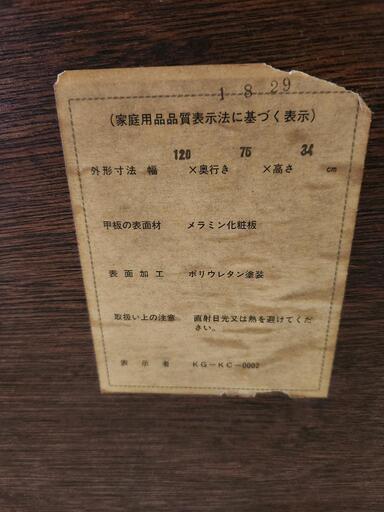 1 8 29
(家庭用品品質表示法に基づく表示)
外形寸法 幅 120 ×奥行き 75 ×高さ 34 cm
甲板の表面材 メラミン化粧板
表面加工 ポリウレタン塗装
取扱い上の注意 直射日光又は熱を避けてくだ
さい。
表示者 KG-KC-0002